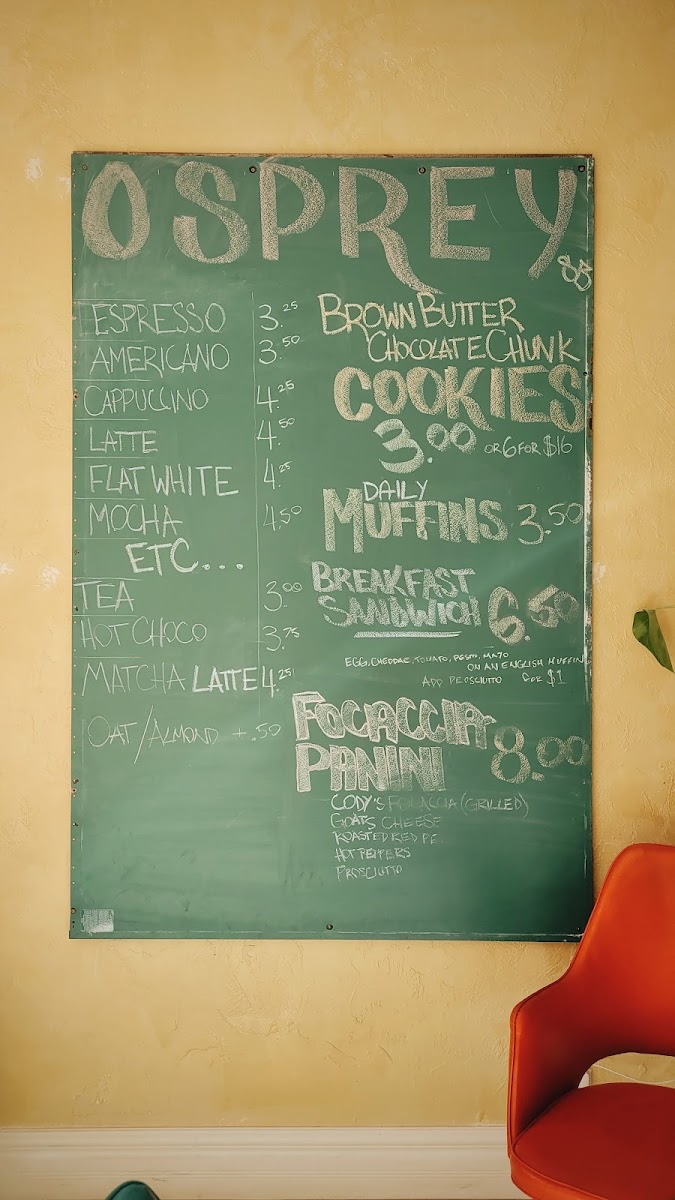 OSPREY
88
ESPRESSO 3.25
AMERICANO 3.50
CAPPUCCINO 4.25
LATTE 4.50
FLAT WHITE 4.25
MOCHA 4.50
ETC...
TEA 3.00
HOT CHOCO 3.75
MATCHA LATTE 4.25
OAT/ALMOND +.50
BROWN BUTTER
CHOCOLATE CHUNK
COOKIES
3.00 OR 6 FOR $16
DAILY
MUFFINS 3.50
BREAKFAST
SANDWICH 6.50
EGG, CHEDDAR, TOMATO, PESTO, MAYO
ON AN ENGLISH MUFFIN
ADD PROSCIUTTO FOR $1
FOCACCIA
PANINI 8.00
CODY'S FOCACCIA (GRILLED)
GOATS CHEESE
ROASTED RED PE
HOT PEPPERS
PROSCIUTTO